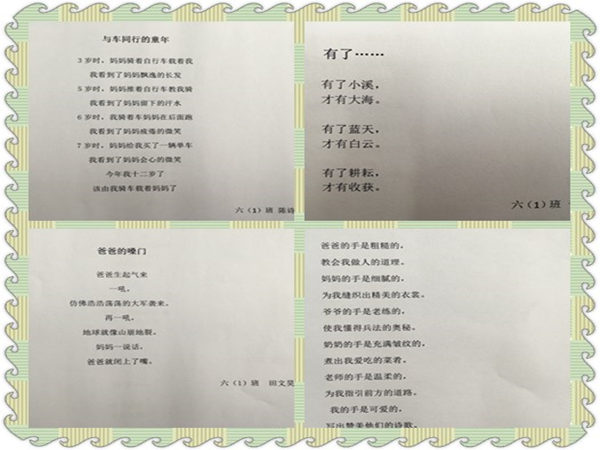 与车同行的童年
3岁时，妈妈骑着自行车载着我
我看到了妈妈飘逸的长发
5岁时，妈妈推着自行车教我骑
我看到了妈妈留下的汗水
6岁时，我骑着车妈妈在后面跑
我看到了妈妈疲倦的微笑
7岁时，妈妈给我买了一辆单车
我看到了妈妈会心的微笑
今年我十二岁了
该由我骑车载着妈妈了
六（1）班 陈诗
有了……
有了小溪，
才有大海。
有了蓝天，
才有白云。
有了耕耘，
才有收获。
六（1）班
爸爸的嗓门
爸爸生起气来
一吼，
仿佛浩浩荡荡的大军袭来。
再一吼，
地球就像山崩地裂。
妈妈一说话，
爸爸就闭上了嘴。
六（1）班 田文昊
爸爸的手是粗糙的，
教会我做人的道理。
妈妈的手是细腻的，
为我缝织出精美的衣裳。
爷爷的手是老练的，
使我懂得兵法的奥秘。
奶奶的手是充满皱纹的，
煮出我爱吃的菜肴。
老师的手是温柔的，
为我指引前方的道路。
我的手是可爱的，
写出赞美他们的诗歌。